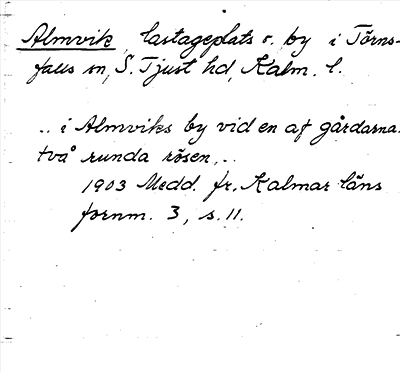 Almvik, lastageplats o. by i Törns-
falls sn, S. Tjust hd, Kalm. l.
.. i Almviks by vid en af gårdarna
två runda rösen, ..
1903 Medd. fr. Kalmar läns
fornm. 3, s. 11.